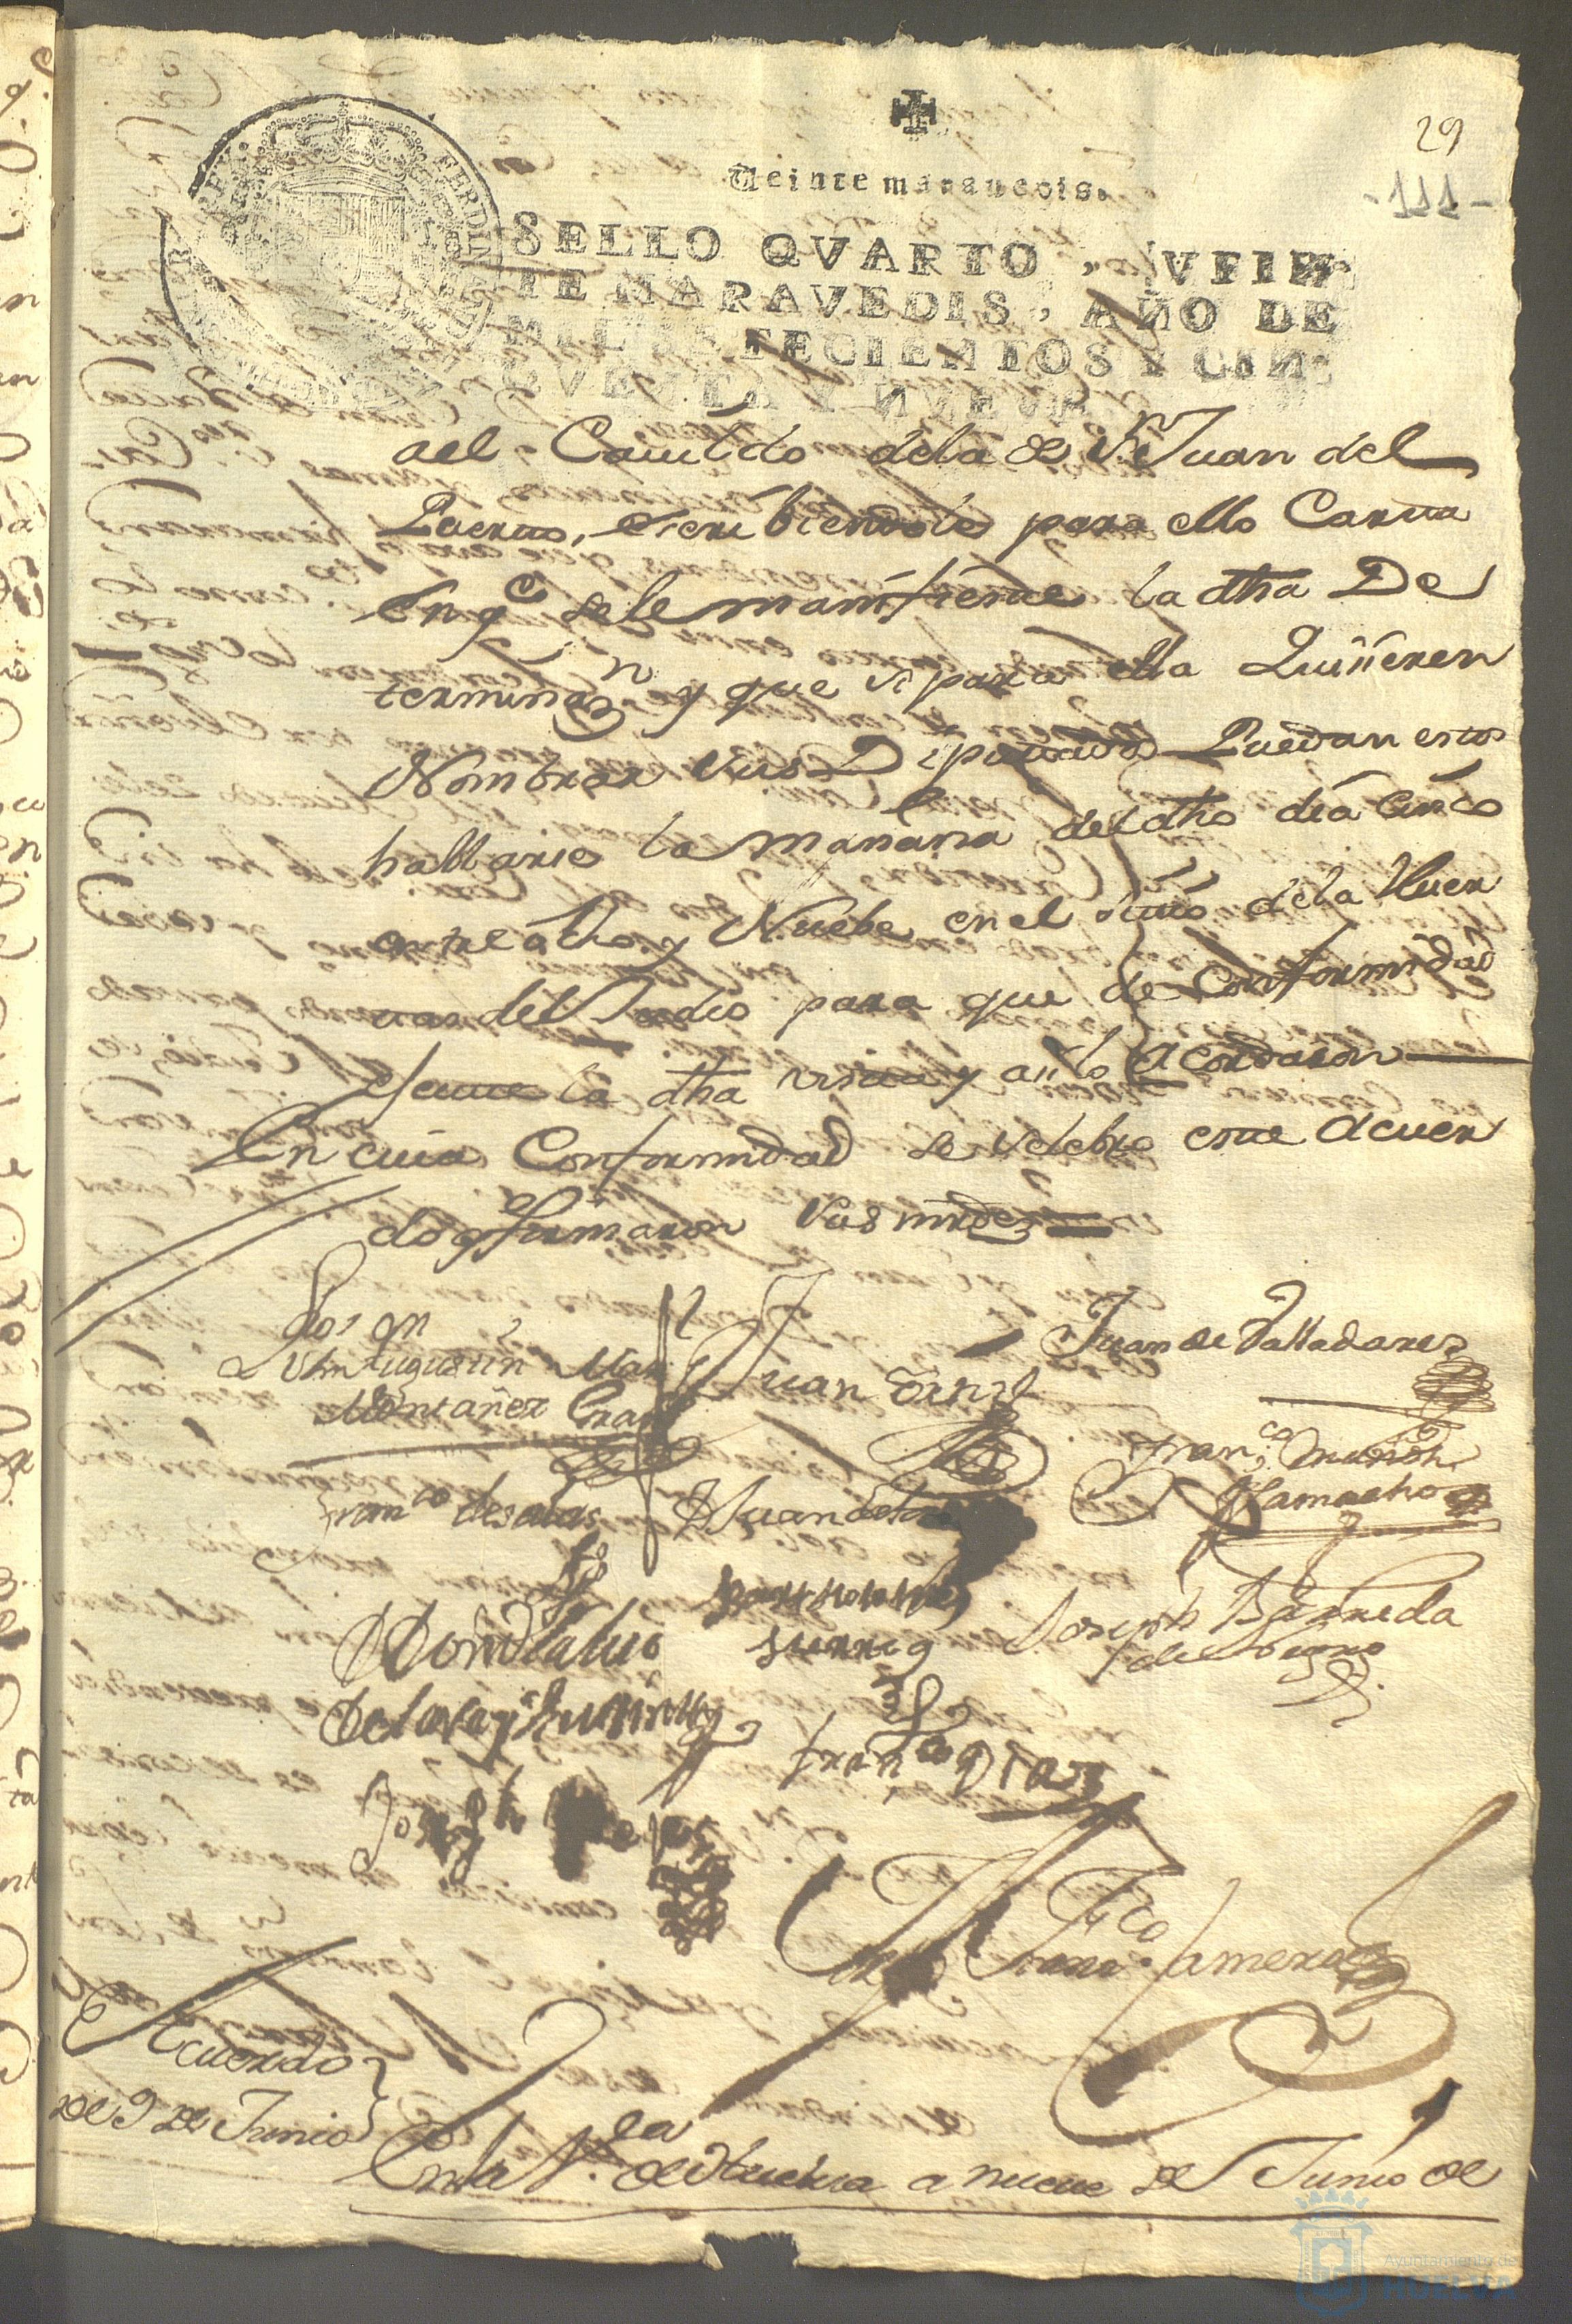 29
-111-
Veinte maravedis.
SELLO QVARTO, VEIN
TE MARAVEDIS, AÑO DE
MIL SETECIENTOS Y CIN
QVENTA Y NUEVE
ael Cavildo dela de Sn Juan del
Puerto, escribiendole para ello Carta
En qe se le manifieste la dha De
terminazn y que si para ella Quisieren
Nombrar sus Diputados Puedan estos
hallarse la mañana del dho dia Cinco
entre ocho y Nuebe en el sitio dela Huer
ta del Judio para que de Conformidad
se la dha vista y asi lo Acordaron
En cuia Conformidad se Zelebro este Acuer
do q firmaron sus mrdes
Agustin Mar
Montañez
Juan
Juan de Valladares
Franco de salas
Juan de
Franco
Camacho
Joseph Barreda
Franco Diaz
Joseph
Franco
Acuerdo
de 9 de Junio
En la Va de Huelva a nueve de Junio de
Ayuntamiento de
HUELVA